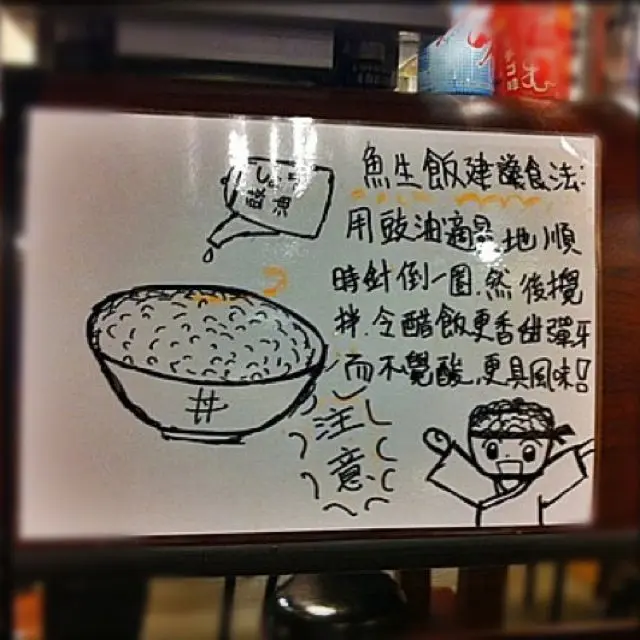 魚生飯建議食法:
用豉油滴品地順
時針倒一圈.然後攪
拌.令醋飯更香甜彈牙
而不覺酸.更具風味!
豉油
井
注
意